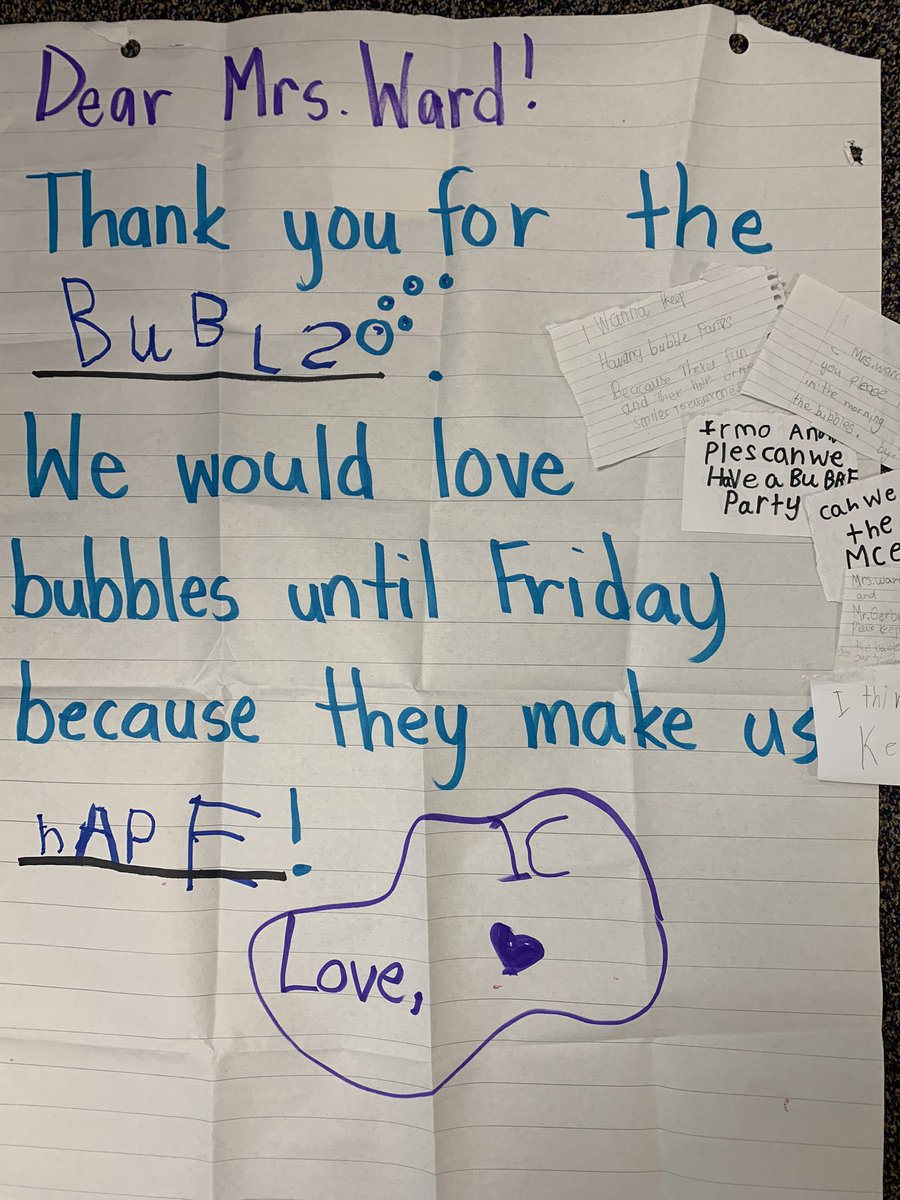 Dear Mrs. Ward!
Thank you for the
BuBLS.
We would love
bubbles until Friday
because they make us
hAPE!
Love,
1C
I Wanna keep
Having bubble
Because
fun
and
help
smiles
Mrs. Ward
you please
in the morning
the bubbles.
by
Ples can we
HaVe a BuBAE
Party
can we
the
MCE
Mrs. war
and
Mr. Gerb
Please keep
the bubble
party
I thin
Ke